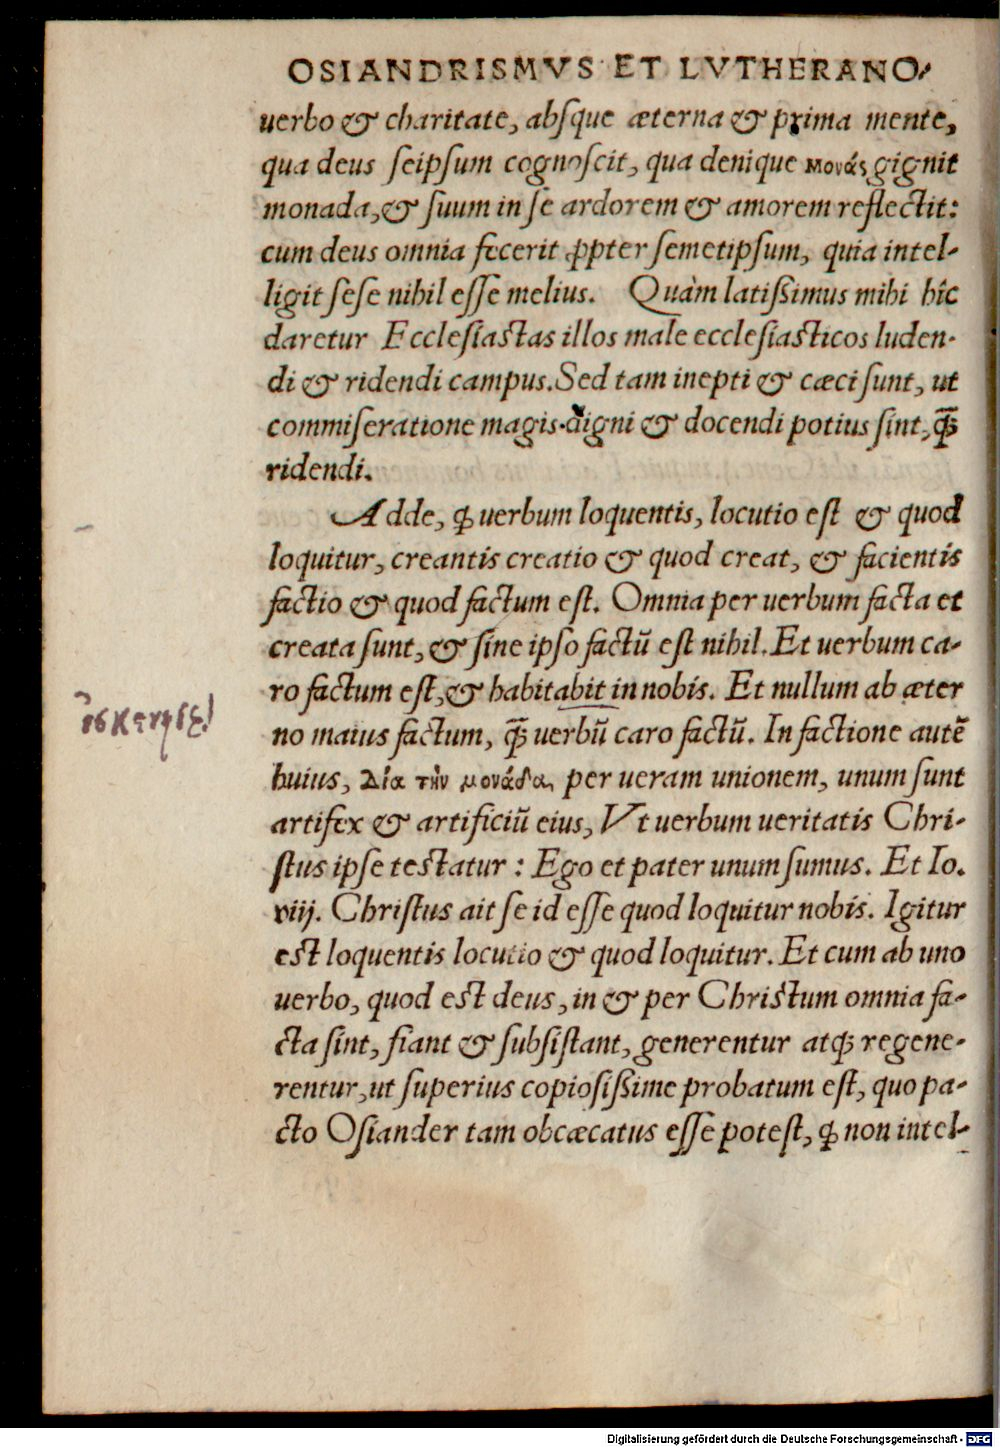 OSIANDRISMVS ET LVTHERANO⸗
uerbo & charitate, absque æterna & prima mente,
qua deus seipsum cognoscit, qua denique μονάς gignit
monada, & suum in se ardorem & amorem reflectit:
cum deus omnia fecerit ꝓpter semetipsum, quia intel-
ligit sese nihil esse melius. Quàm latißimus mihi hîc
daretur Ecclesiastas illos male ecclesiasticos luden-
di & ridendi campus. Sed tam inepti & cæci sunt, ut
commiseratione magis digni & docendi potius sint, ꝗ̃
ridendi.
Adde, ꝙ uerbum loquentis, locutio est & quod
loquitur, creantis creatio & quod creat, & facientis
factio & quod factum est. Omnia per uerbum facta et
creata sunt, & sine ipso factũ est nihil. Et uerbum ca-
ro factum est, & habitabit in nobis. Et nullum ab æter
no maius factum, ꝗ̃ uerbũ caro factũ. In factione autẽ
huius, Δία τὴν μονάδα, per ueram unionem, unum sunt
artifex & artificiũ eius, Vt uerbum ueritatis Chri-
stus ipse testatur : Ego et pater unum sumus. Et Io.
viij. Christus ait se id esse quod loquitur nobis. Igitur
est loquentis locutio & quod loquitur. Et cum ab uno
uerbo, quod est deus, in & per Christum omnia fa-
cta sint, fiant & subsistant, generentur atqꝫ regene-
rentur, ut superius copiosißime probatum est, quo pa-
cto Osiander tam obcæcatus esse potest, ꝙ non intel-
Digitalisierung gefördert durch die Deutsche Forschungsgemeinschaft - DFG